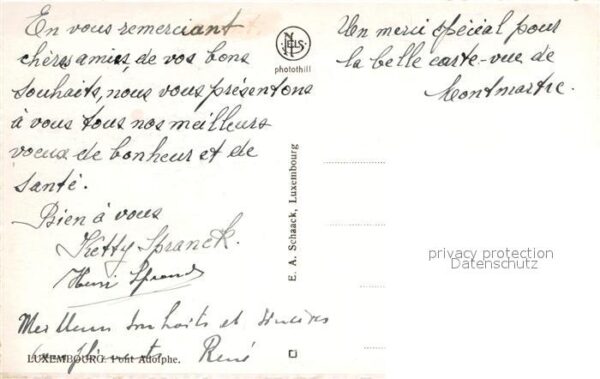 En vous remerciant
chers amis, de vos bons
souhaits, nous vous présentons
à vous tous nos meilleurs
voeux de bonheur et de
santé.
Bien à vous
Ketty Spranck.
Henri Spranck
Meilleurs souhaits et sincères
René
LUXEMBOURG. Pont Adolphe.
NELS
photothill
E. A. Schaack, Luxembourg
Un merci spécial pour
la belle carte-vue de
Montmartre.
privacy protection
Datenschutz